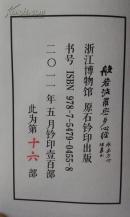 般若波羅蜜多心經
浙江博物馆 原石钤印出版
书号 ISBN 978-7-5479-0455-8
二〇一一年五月钤印壹百部
此为第十六部